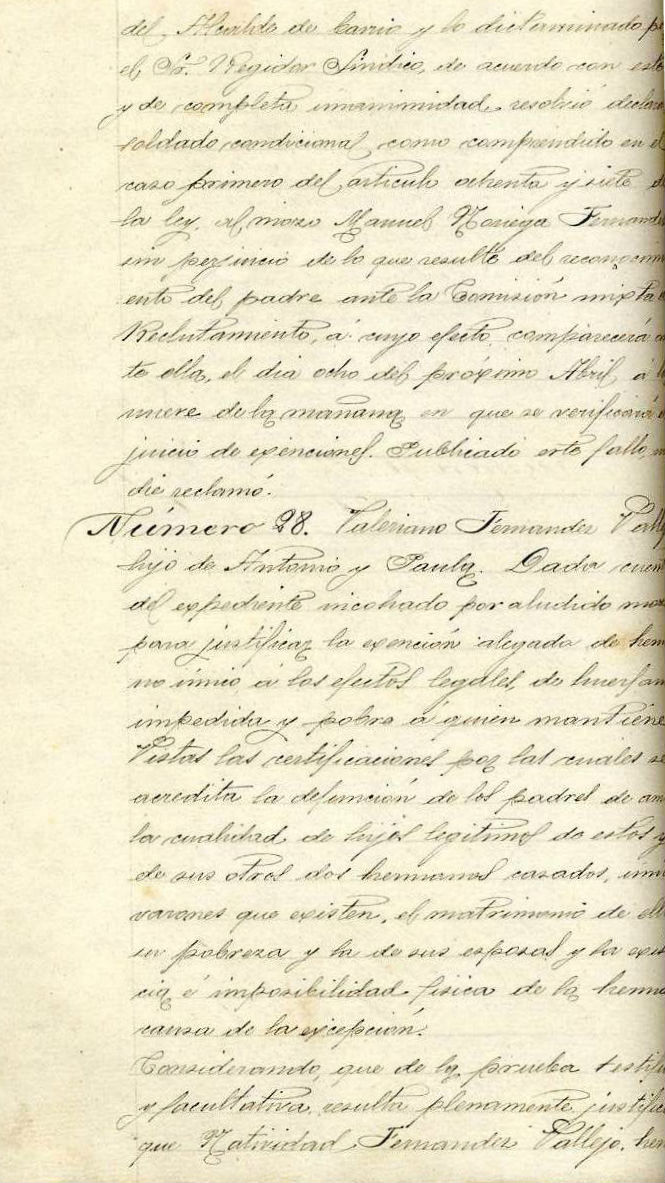 del Alcalde de barrio y lo dictaminado p
el Sr. Regidor Síndico, de acuerdo con est
y de completa unanimidad, resolvió declara
soldado condicional, como comprendido en e
caso primero del artículo ochenta y siete d
la ley, al mozo Manuel Noriega Fernand
sin perjuicio de lo que resulte del reconocim
ento del padre ante la Comisión mixta
Reclutamiento, á cuyo efecto, comparecerá a
te ella, el dia ocho del próximo Abril, á l
nueve de la mañana en que se verificará
juicio de exenciones. Publicado este fallo n
die reclamó.
Número 28. Valeriano Fernandez Vall
hijo de Antonio y Paula. Dada cuen
del expediente incohado por aludido mo
para justificar la exención alegada de herm
no único á los efectos legales, de huerfan
impedida y pobre á quien mantiene
Vistas las certificaciones por las cuales se
acredita la defunción de los padres de am
la cualidad de hijos legitimos de estos y
de sus otros dos hermanos casados, úni
varones que existen, el matrimonio de ell
su pobreza y la de sus esposas y la exis
cia é imposibilidad física de la herma
causa de la excepción.
Considerando, que de la prueba testifi
y facultativa, resulta plenamente justific
que Natividad Fernandez Vallejo, her